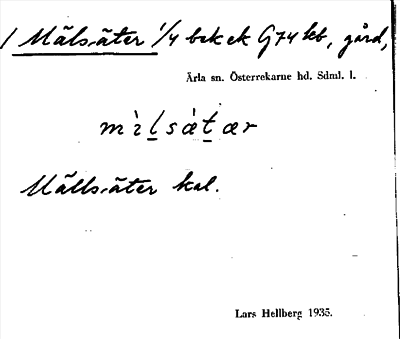 / Mälsäter 1/4 bek ek G74 kb, gård,
Ärla sn. Österrekarne hd. Sdml. l.
mìl̲sǽt̲ær
Mällsäter kal.
Lars Hellberg 1935.